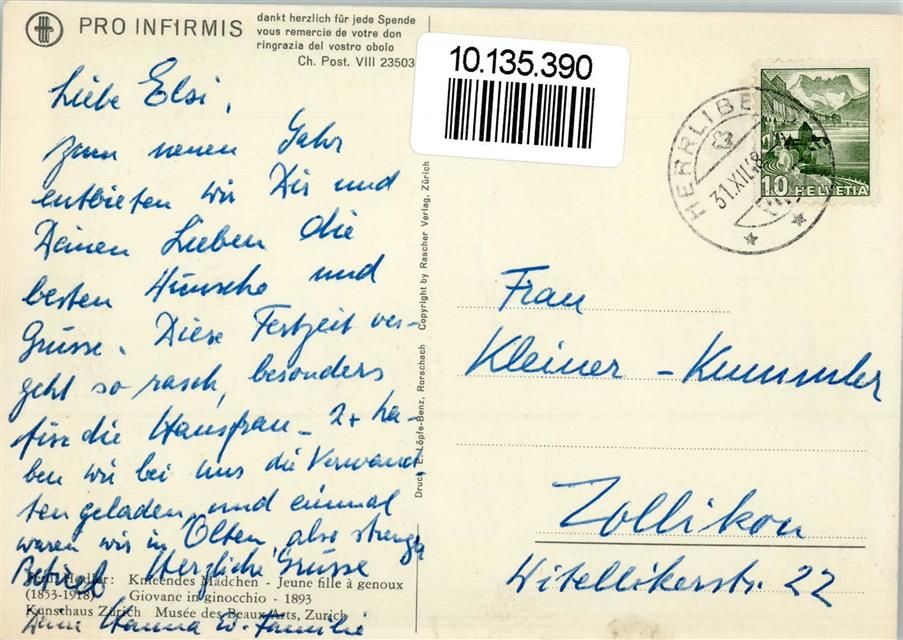 PRO INFIRMIS
dankt herzlich für jede Spende
vous remercie de votre don
ringrazia del vostro obolo
Ch. Post. VIII 23503
10.135.390
HERRLIBERG
31.XII.48
10 HELVETIA
Liebe Elsi,
zum neuen Jahr
entbieten wir Dir und
Deinen Lieben die
besten Wünsche und
Grüsse. Diese Festzeit ver-
geht so rasch, besonders
für die Hausfrau - 2x ha-
ben wir bei uns die Verwand-
ten geladen und einmal
waren wir in Olten, also strenger
Betrieb. Herzliche Grüsse
Deine Hanna u. Familie
Ferd. Hodler: Knieendes Mädchen - Jeune fille à genoux
(1853-1918) Giovane in ginocchio - 1893
Kunsthaus Zürich Musée des Beaux Arts, Zurich
Druck E. Löpfe-Benz, Rorschach Copyright by Rascher Verlag, Zürich
Frau
Kleiner-Kummler
Zollikon
Witellikerstr. 22